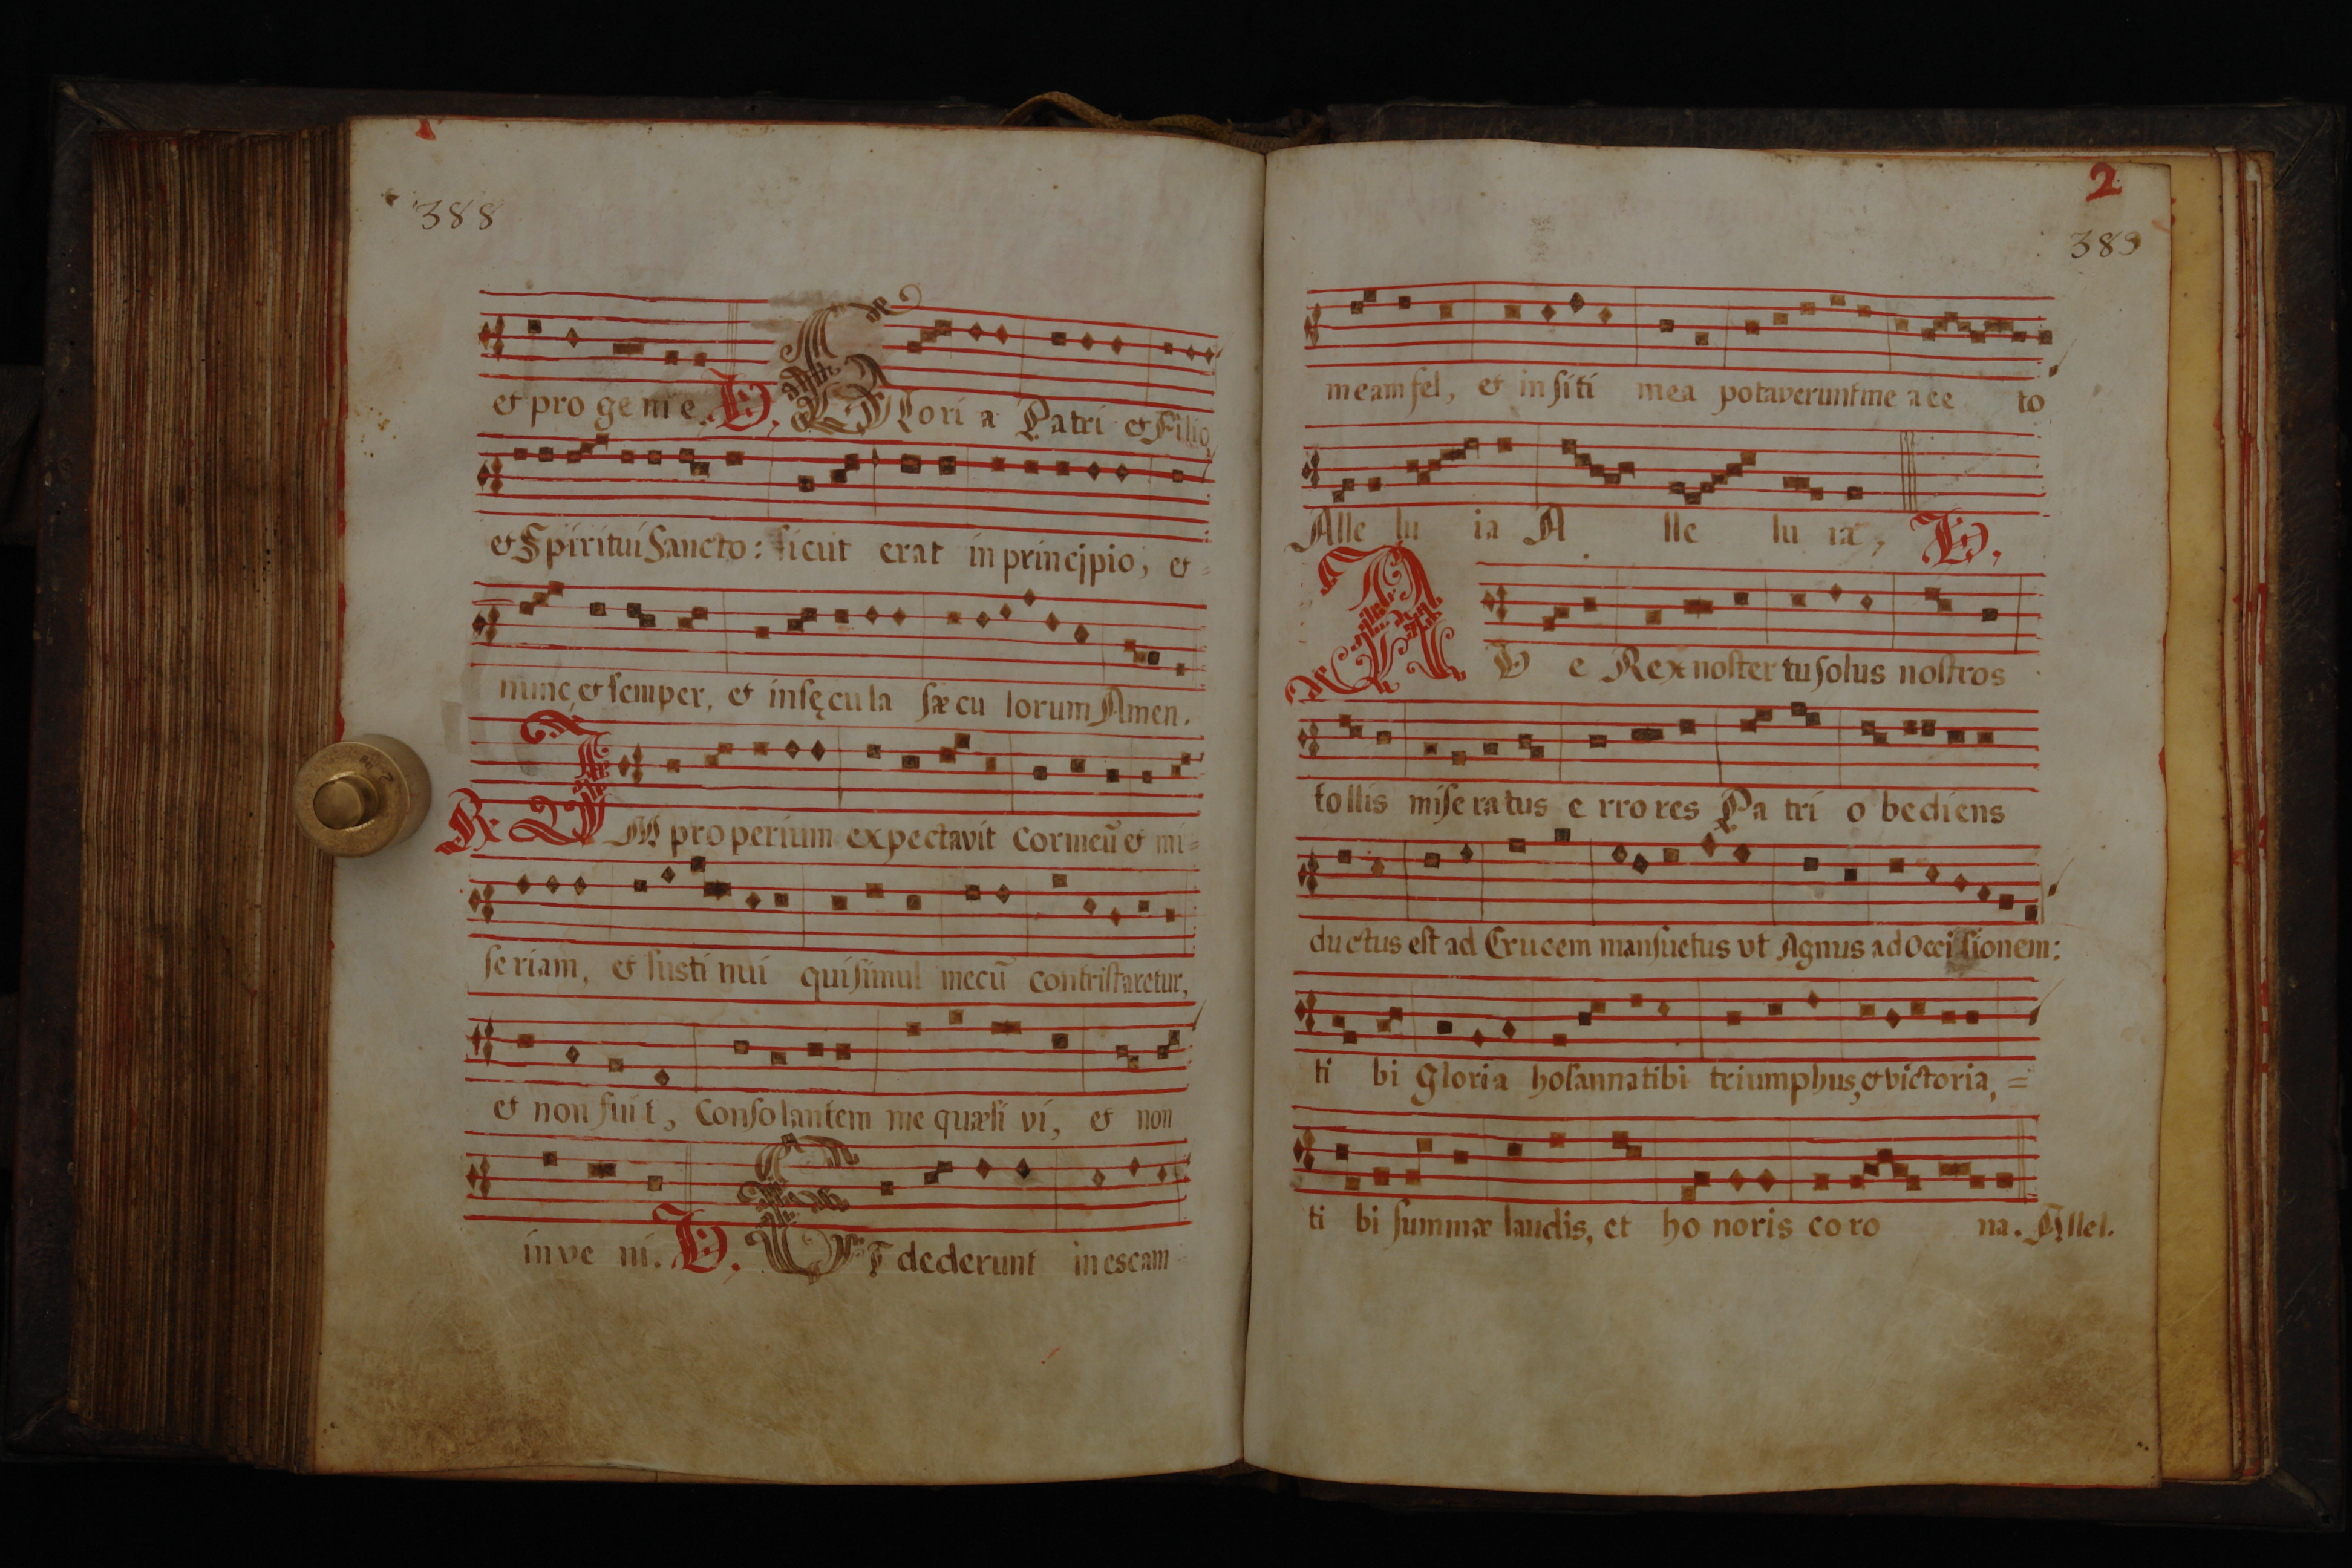 388
et pro ge ni e. V. Glori a Patri et Filio
et Spiritui Sancto: sicut erat in principio, et =
nunc, et semper, et in sęcula sæcu lorum Amen.
R. IM properium expectavit cor meũ et mi=
seriam, et susti nui qui simul mecũ contristaretur,
et non fuit, Consolantem me quæsi vi, et non
inve ni. V. ET dederunt in escam
2
389
meam fel, et in siti mea potaverunt me ace to
Alle lu ia A lle lu ia, V.
AV e Rex noster tu solus nostros
tollis mise ratus e rro res Pa tri o bediens
ductus est ad Crucem mansuetus vt Agnus ad Occi sionem:
ti bi Gloria hosanna tibi triumphus, et victoria, =
ti bi summæ laudis, et ho noris co ro na. Allel.